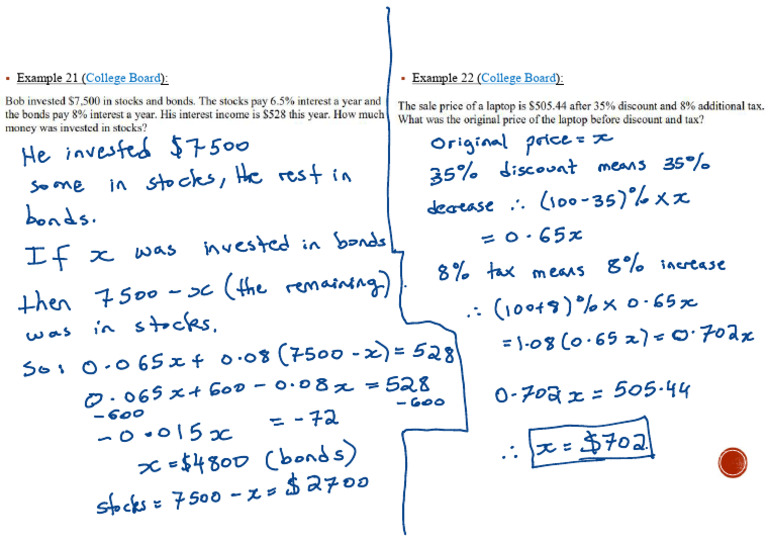 ▪ Example 21 (College Board):
Bob invested $7,500 in stocks and bonds. The stocks pay 6.5% interest a year and
the bonds pay 8% interest a year. His interest income is $528 this year. How much
money was invested in stocks?
He invested $7500
some in stocks, the rest in
bonds.
If x was invested in bonds
then 7500-x (the remaining).
was in stocks.
So: 0.065x + 0.08(7500-x) = 528
0.065x + 600 - 0.08x = 528
-600 -600
-0.015x = -72
x = $4800 (bonds)
stocks = 7500 - x = $2700
▪ Example 22 (College Board):
The sale price of a laptop is $505.44 after 35% discount and 8% additional tax.
What was the original price of the laptop before discount and tax?
Original price = x
35% discount means 35%
decrease ∴ (100-35)% × x
= 0.65x
8% tax means 8% increase
∴ (100+8)% × 0.65x
= 1.08(0.65x) = 0.702x
0.702x = 505.44
∴ x = $702.